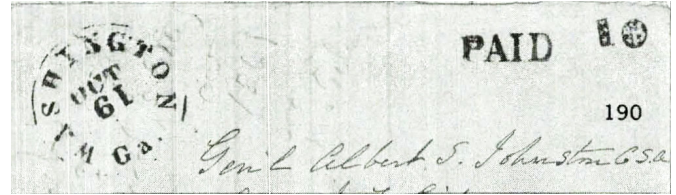 WASHINGTON
OCT
61
Ga.
PAID 10
190
Gen'l Albert S. Johnston C.S.A